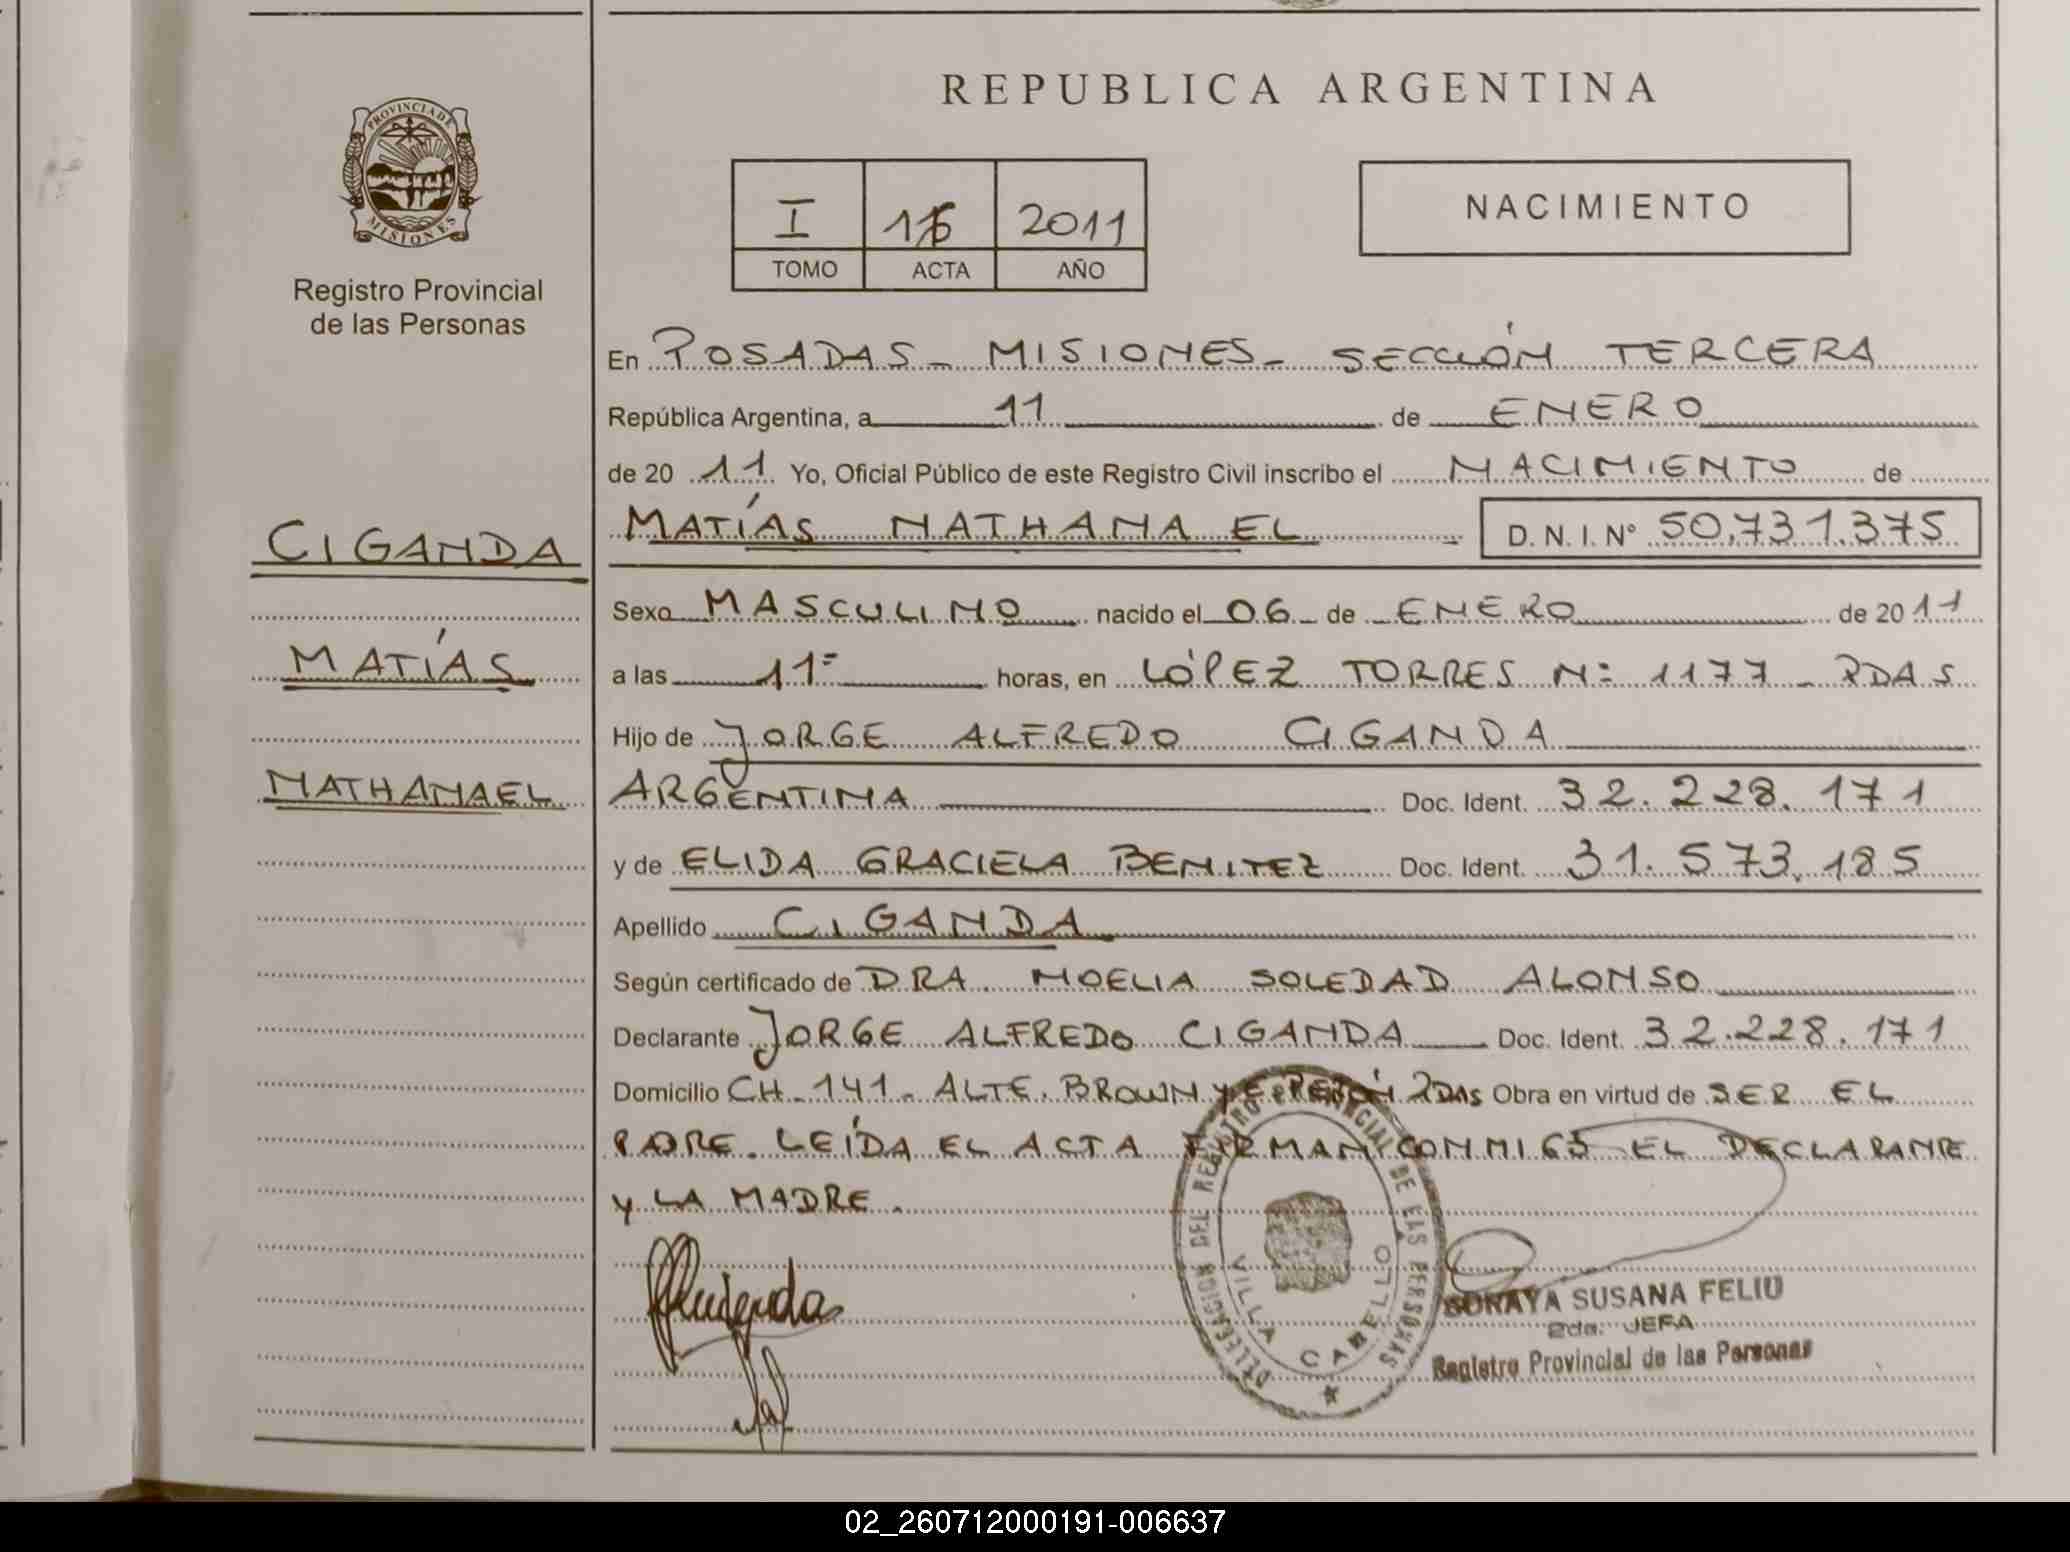 REPUBLICA ARGENTINA
PROVINCIA DE
MISIONES
Registro Provincial
de las Personas
I
2011
TOMO ACTA AÑO
NACIMIENTO
En POSADAS - MISIONES - SECCIÓN TERCERA
República Argentina, a 11 de ENERO
de 20 11 Yo, Oficial Público de este Registro Civil inscribo el NACIMIENTO de
MATÍAS NATHANAEL D.N.I. Nº 50.731.375
CIGANDA
MATÍAS
NATHANAEL
Sexo MASCULINO nacido el 06 de ENERO de 20 11
a las 11= horas, en LÓPEZ TORRES Nº 1177 - PDAS
Hijo de JORGE ALFREDO CIGANDA
ARGENTINA Doc. Ident. 32.228.171
y de ELIDA GRACIELA BENITEZ Doc. Ident. 31.573.185
Apellido CIGANDA
Según certificado de DRA. NOELIA SOLEDAD ALONSO
Declarante JORGE ALFREDO CIGANDA Doc. Ident. 32.228.171
Domicilio CH. 141 - ALTE. BROWN y E. PERÓN PDAS Obra en virtud de SER EL
PADRE. LEÍDA EL ACTA FIRMAN CONMIGO EL DECLARANTE
y LA MADRE.
DELEGACION DEL REGISTRO PROVINCIAL DE LAS PERSONAS
VILLA CABELLO
SORAYA SUSANA FELIU
2da. JEFA
Registro Provincial de las Personas
02_260712000191-006637